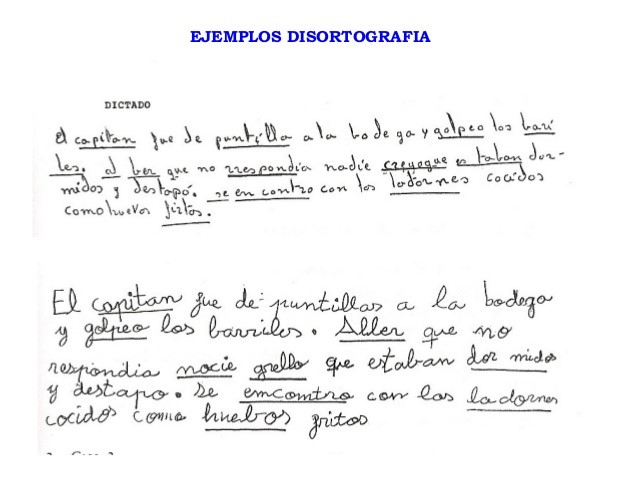 EJEMPLOS DISORTOGRAFIA
DICTADO
el capitan fue de puntilla a la bodega y golpeo los bari
les. al ber que no rrespondia nadie creyoque es taban dor-
midos y destopó. se en contro con los ladornes cocidos
como huevos firtos.
El copitan fue de puntillas a la bodega
y golpeo los barriles. Aller que no
respondia nocie grello que estaban dor midos
y destapo. se emcomtro con los ladornes
cocidos como huebos fritos